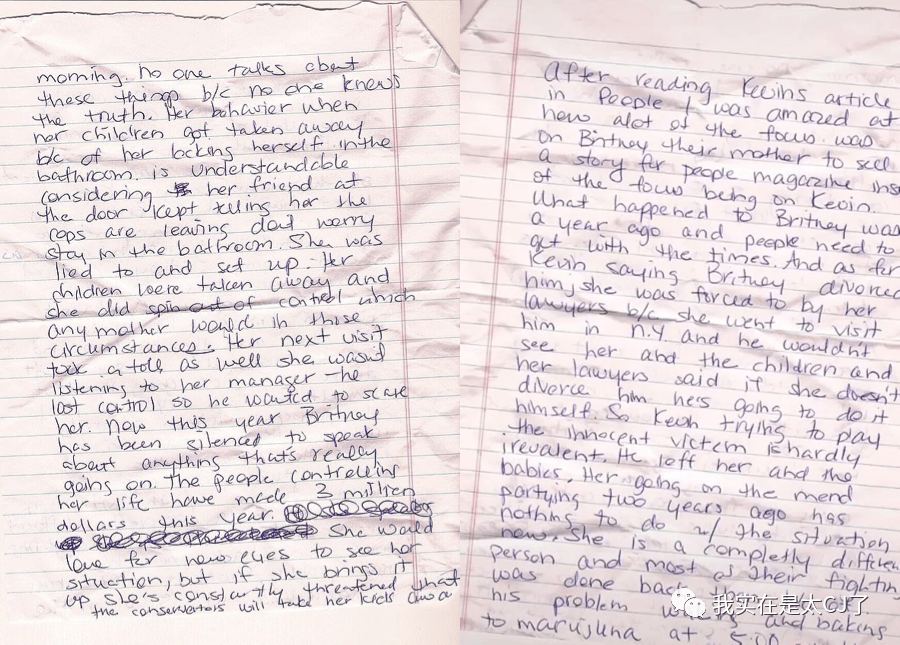 morning. No one talks about
these things b/c no one knows
the truth. Her behavior when
her children got taken away
b/c of her locking herself in the
bathroom. is understandable
considering her friend at
the door kept telling her the
cops are leaving don't worry
stay in the bathroom. She was
lied to and set up. Her
children were taken away and
she did spin out of control which
any mother would in those
circumstances. Her next visit
took a toll as well she wasn't
listening to her manager - he
lost control so he wanted to scare
her. Now this year Britney
has been silenced to speak
about anything that's really
going on. The people controlling
her life have made 3 million
dollars this year.
She would
love for new eyes to see her
situation, but if she brings it
up she's constantly threatened that
the conservators will take her kids away
After reading Kevins article
in People I was amazed at
how alot of the focus was
on Britney their mother to sell
a story for people magazine ins
of the focus being on Kevin.
What happened to Britney was
a year ago and people need to
get with the times. And as far
Kevin saying Britney divorced
him, she was forced to by her
lawyers b/c she went to visit
him in N.Y and he wouldn't
see her and the children and
her lawyers said if she doesn't
divorce him he's going to do it
himself. So Kevin trying to play
the innocent victem is hardly
irevalent. He left her and the
babies. Her going on the mend
partying two years ago has
nothing to do w/ the situation
now. She is a completly differen
person and most of their fighting
was done back
his problem and baking
to marujuna at 5:00
我实在是太CJ了